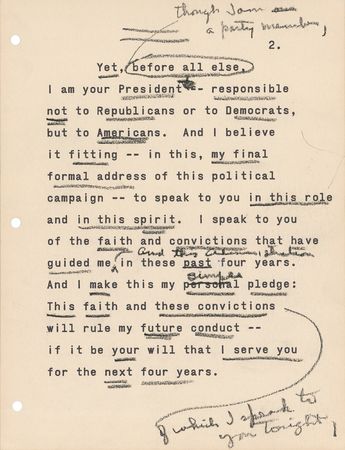 though I am
a party member,
2.
Yet, before all else,
I am your President -- responsible
not to Republicans or to Democrats,
but to Americans. And I believe
it fitting -- in this, my final
formal address of this political
campaign -- to speak to you in this role
and in this spirit. I speak to you
of the faith and convictions that have
and this administration
guided me in these past four years.
simple
And I make this my personal pledge:
This faith and these convictions
will rule my future conduct --
if it be your will that I serve you
for the next four years.
of which I speak to
you tonight,